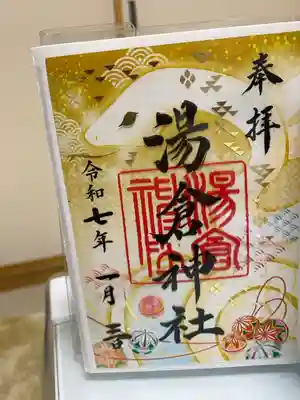 奉拝
湯倉神社
湯倉
神社
令和七年 一月 三日